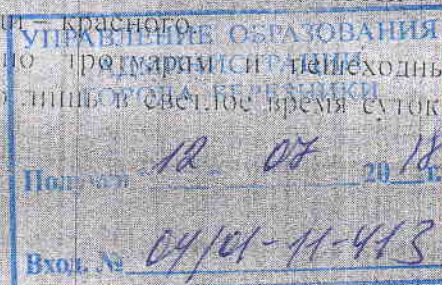 – красного.
УПРАВЛЕНИЕ ОБРАЗОВАНИЯ
по тротуарам и пешеходны
АДМИНИСТРАЦИИ
лишь в светлое время суток
ГОРОДА БЕРЕЗНИКИ
Получен 12 07 20 18 г.
Вход. № 04/01-11-413